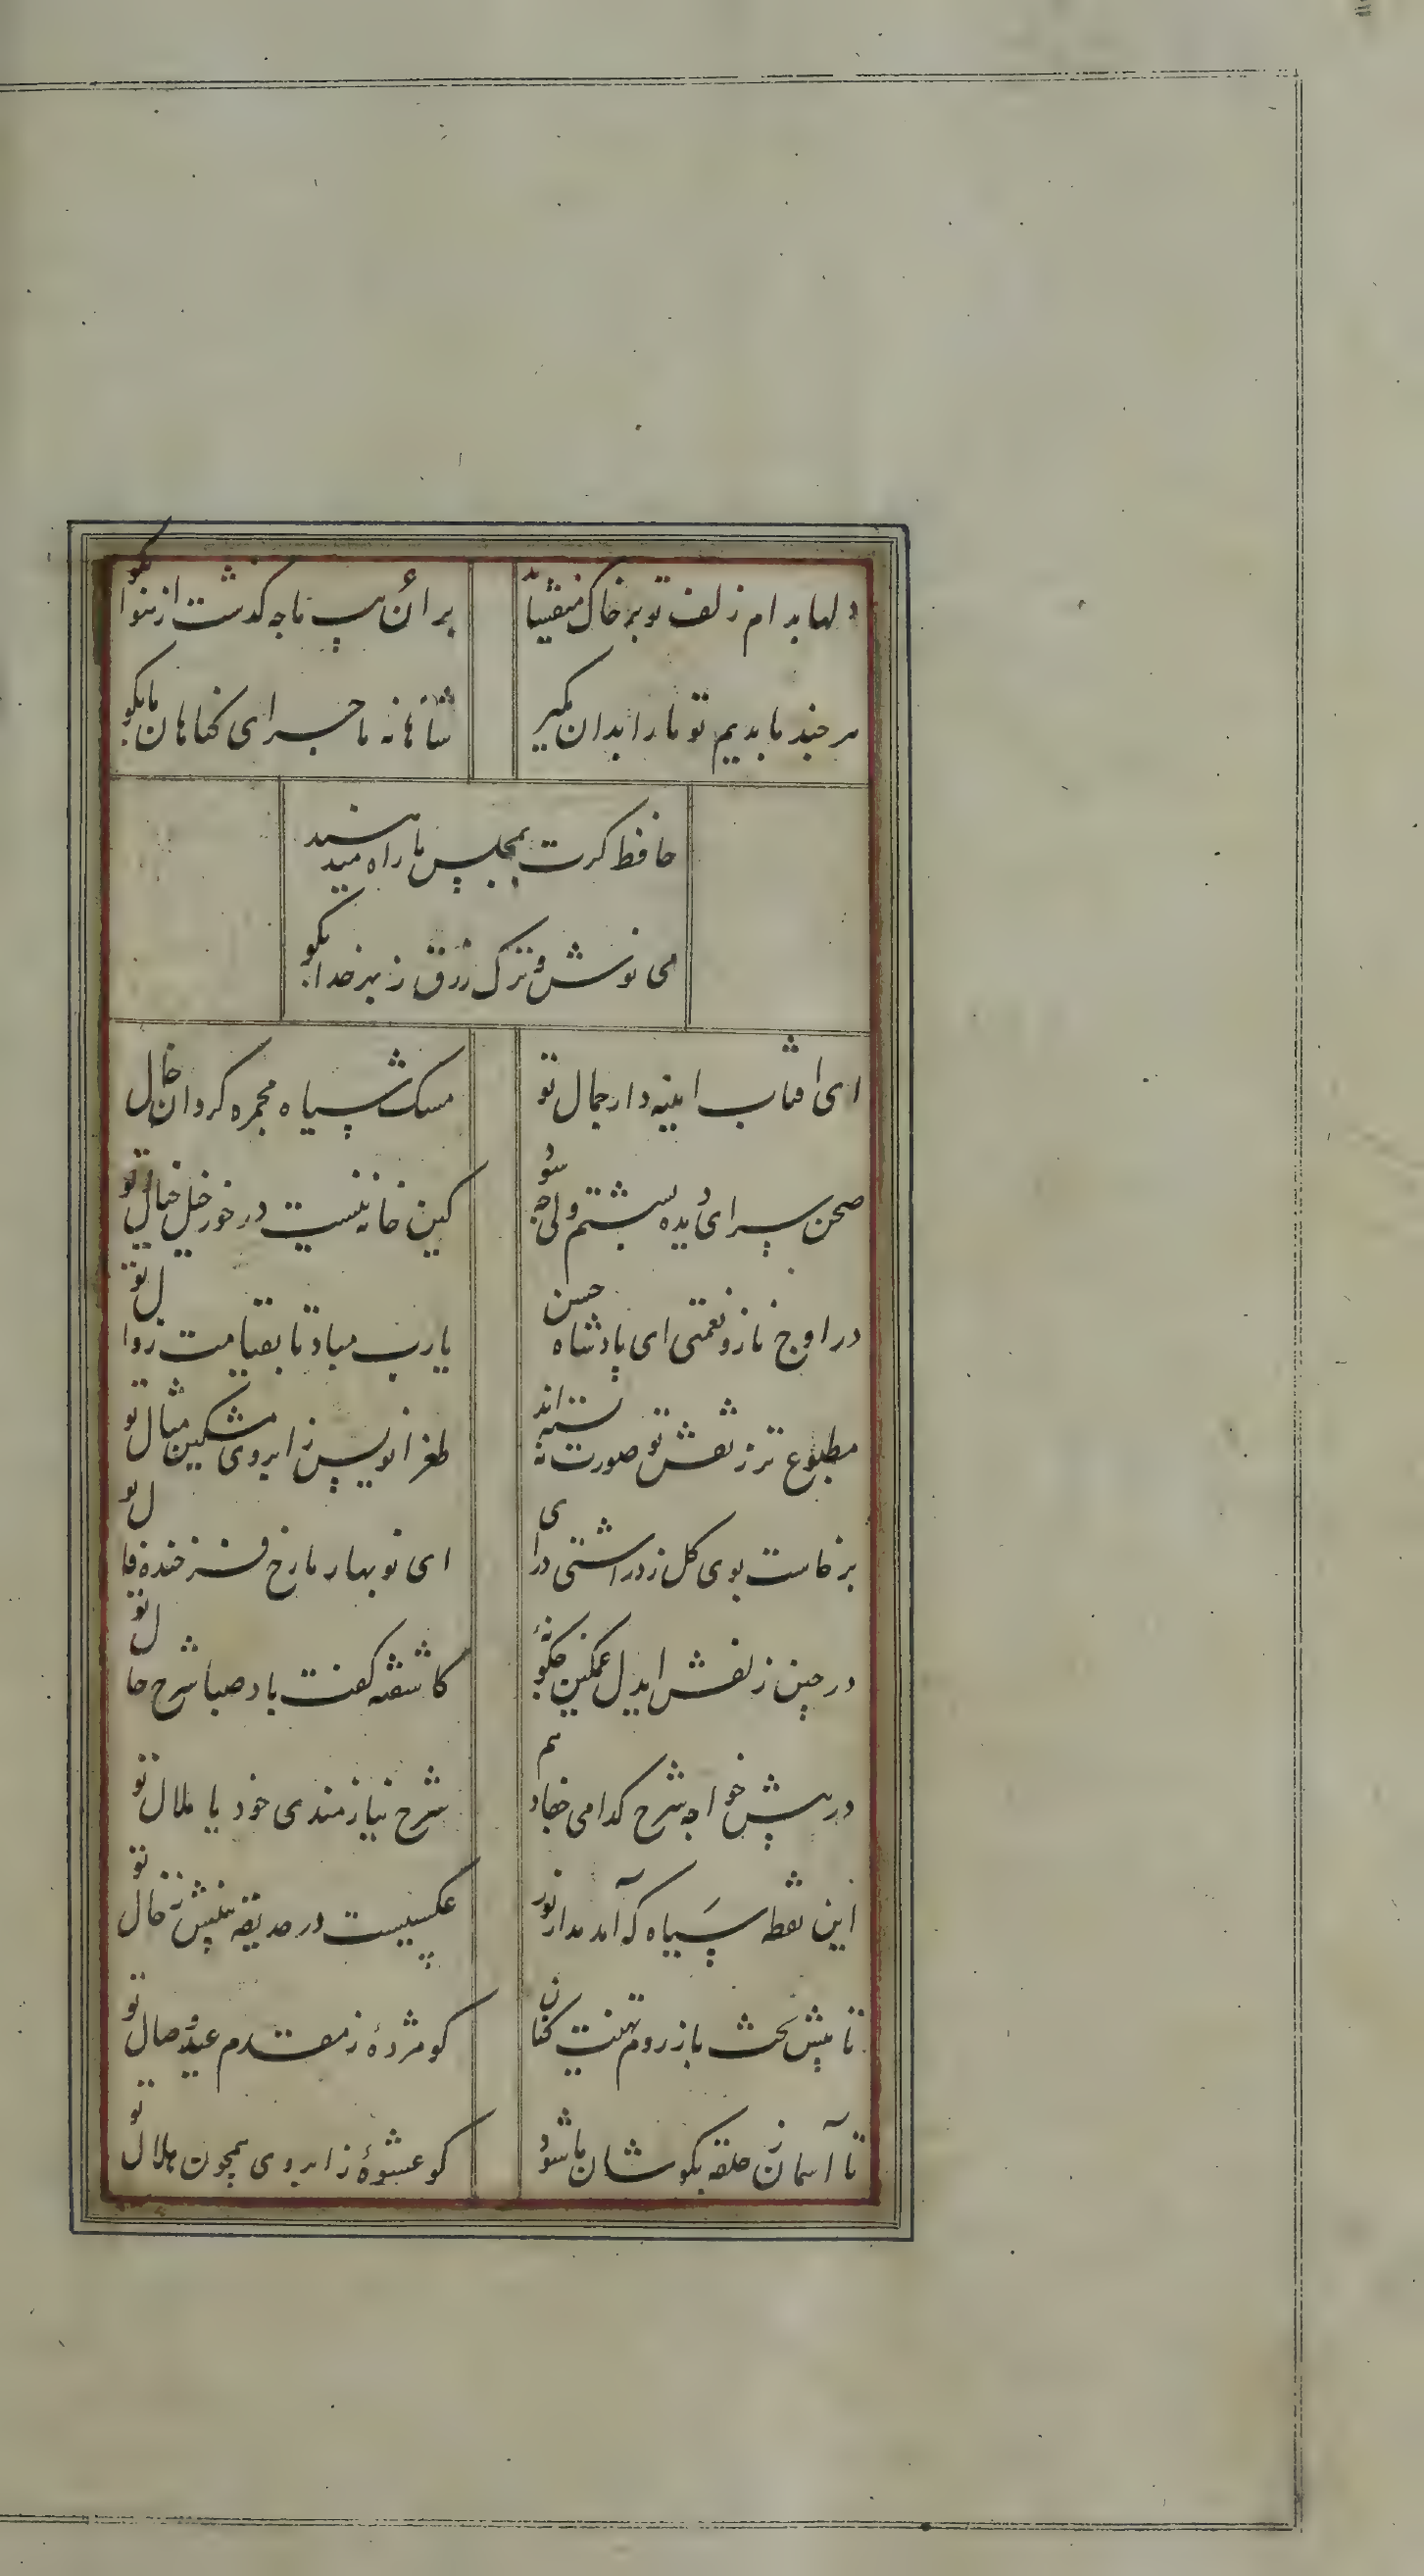 دلها بدام زلف تو بر خاک میفشاند
بر آن سپ ما چه کذشت از هوا بکو
هر چند ما بدیم تو ما را بدان مکیر
شاهانه ماجرای کناهان ما بکو
حافظ کرت بمجلس ما راه میدهند
می نوش و ترک زرق ز بهر خدا بکو
ای افتاب اینه دار جمال تو
مسک سیاه مجمره کردان خال تو
صحن سرای دیده بشستم ولی چه سود
کین خانه نیست در خور خیل خیال تو
در اوج ناز و نعمتی ای پادشاه حسن
یا رب مباد تا بقیامت زوال تو
مطبوع تر ز نقش تو صورت نه بسته اند
طغرا نویس ز ابروی مشکین مثال تو
برخاست بوی کل ز در اشتی درای
ای نوبهار ما رخ فرخنده فال تو
در چین زلفش ایدل غمکین چکونه‌ٔ
کاشفته کفت باد صبا شرح حال تو
در پیش خواجه شرح کدامی جفا دهم
شرح نیازمندی خود یا ملال تو
این نقطه سیاه که آمد مدار نور
عکسیست در حدیقه بینش ز خال تو
تا پیش بخت باز روم تهنیت کنان
کو مژدهٔ ز مقدم عید وصال تو
تا آسمان ز حلقه بکوشان ما شود
کو عشوهٔ ز ابروی همچون هلال تو